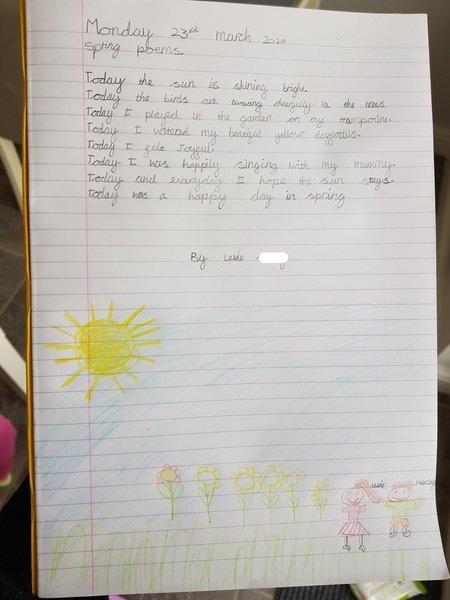 Monday 23rd march 2020
Spring poems.
Today the sun is shining bright.
Today the birds are tweeting cheerfully in the trees
Today I played in the garden on my trampoline.
Today I watered my beatiful yellow daffodils.
Today I felt Joyful.
Today I was happily singing with my mummy.
Today and everyday I hope the sun stays.
Today was a happy day in spring
By Lexie
Lexie